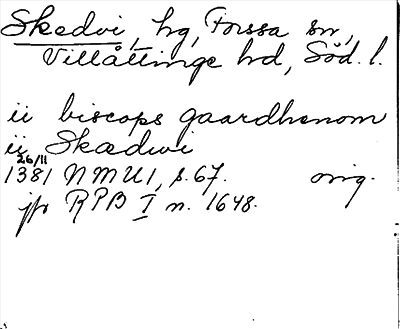 Skedvi, hg, Forssa sn,
Villåttinge hd, Söd. l.
ii biscops gaardhenom
ii Skædwi
26/11
1381 NMU1, s. 67. orig.
jfr RPB I n. 1648.